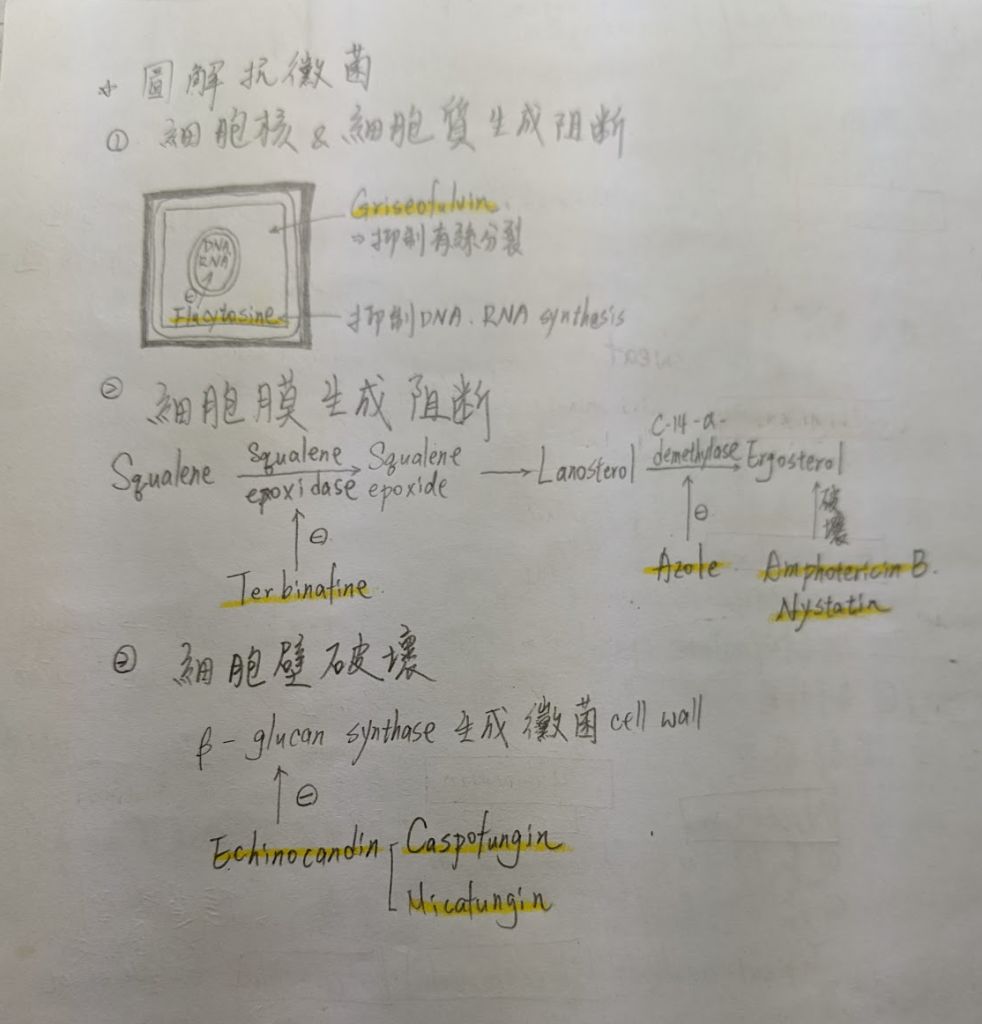 * 圖解抗黴菌
① 細胞核 & 細胞質生成阻断
Griseofulvin
→ 抑制有絲分裂
DNA
RNA
⊖
Flucytosine
抑制DNA. RNA synthesis
② 細胞膜生成阻断
Squalene Squalene epoxidase Squalene epoxide → Lanosterol C-14-α-demethylase Ergosterol
⊖ ⊖ 破壞
Terbinafine Azole Amphotericin B.
Nystatin
③ 細胞壁破壞
β-glucan synthase 生成黴菌cell wall
⊖
Echinocandin Caspofungin
Micafungin